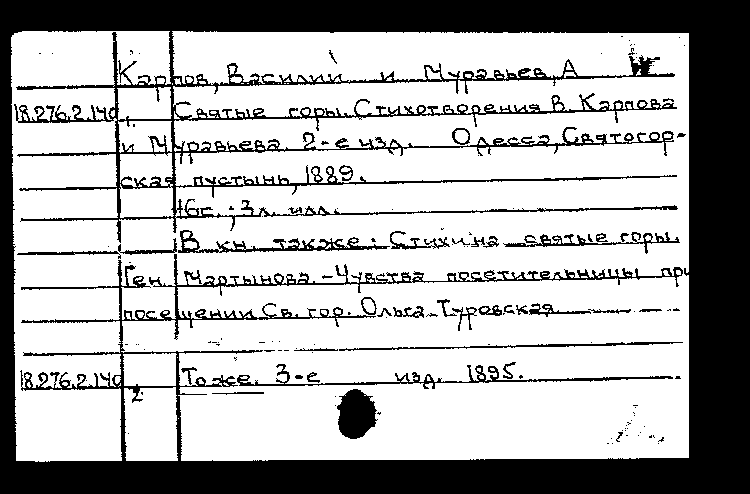 Карпов, Василий и Муравьев, А
18.276.2.140 1. Святые горы. Стихотворения В. Карпова
и Муравьева. 2-е изд. Одесса, Святогор-
ская пустынь, 1889.
16с.; 3л. илл.
В кн. также: Стихи на святые горы.
Ген. Мартынова. - Чувства посетительницы при
посещении Св. гор. Ольга Туровская
18.276.2.140 2 Тоже. 3-е изд. 1895.